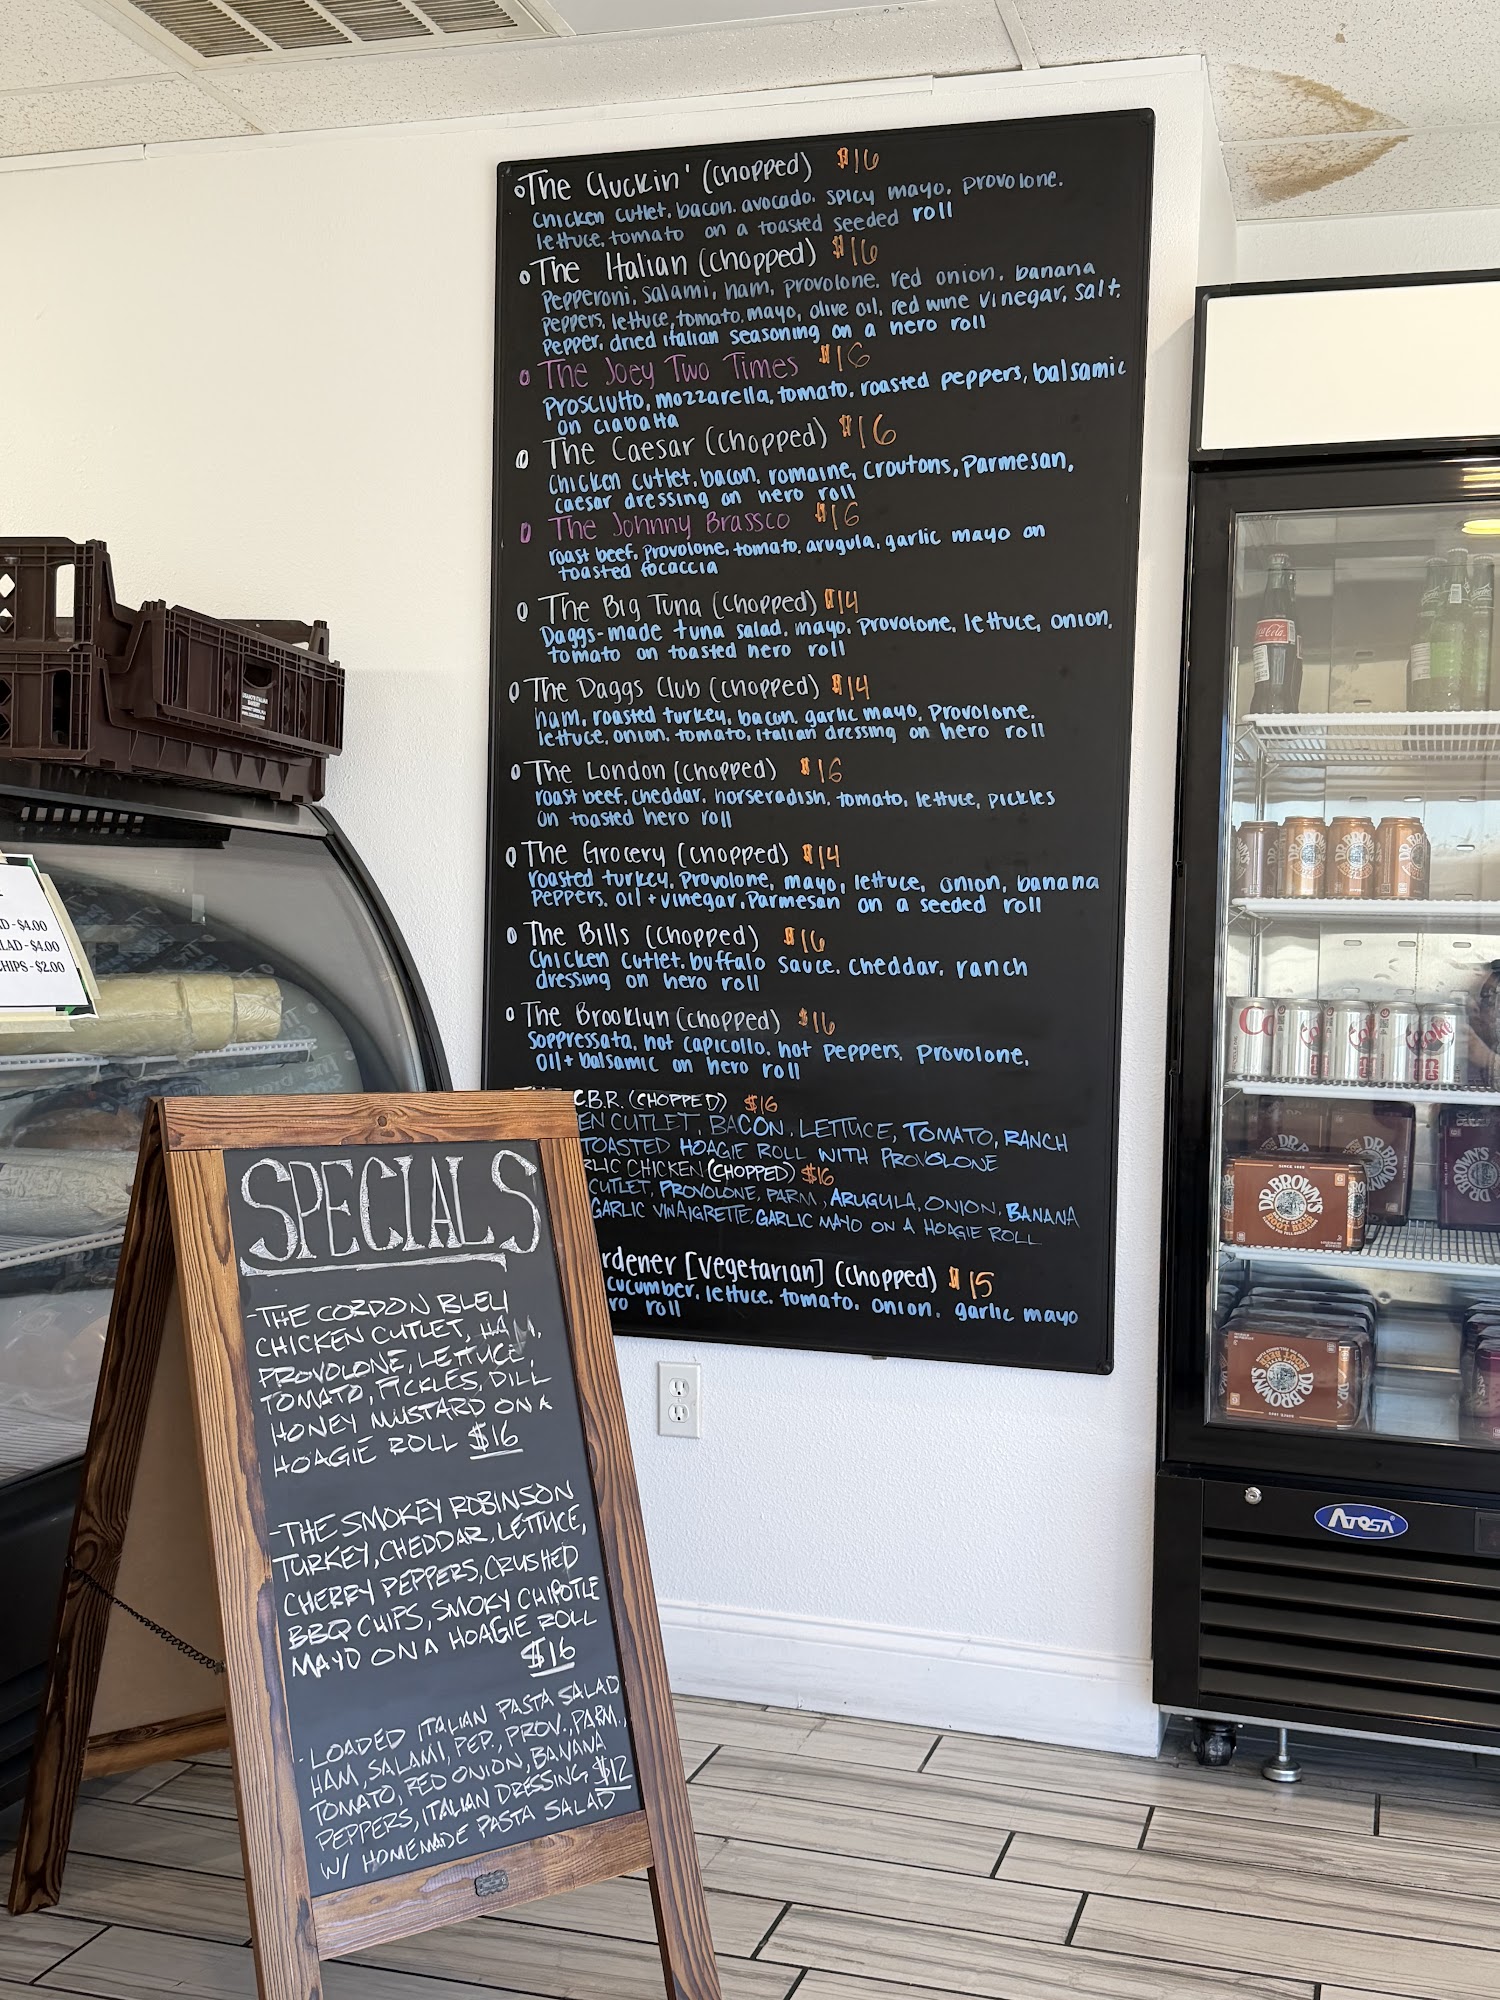 The Cluckin' (chopped) $16
chicken cutlet, bacon, avocado, spicy mayo, provolone,
lettuce, tomato on a toasted seeded roll
The Italian (chopped) $16
Pepperoni, salami, ham, provolone, red onion, banana
peppers, lettuce, tomato, mayo, olive oil, red wine vinegar, salt,
pepper, dried italian seasoning on a hero roll
The Joey Two Times $16
Prosciutto, mozzarella, tomato, roasted peppers, balsamic
on ciabatta
The Caesar (chopped) $16
chicken cutlet, bacon, romaine, croutons, parmesan,
caesar dressing on hero roll
The Johnny Brassco $16
roast beef, provolone, tomato, arugula, garlic mayo on
toasted focaccia
The Big Tuna (chopped) $14
Daggs-made tuna salad, mayo, provolone, lettuce, onion,
tomato on toasted hero roll
The Daggs Club (chopped) $14
ham, roasted turkey, bacon, garlic mayo, provolone,
lettuce, onion, tomato, italian dressing on hero roll
The London (chopped) $16
roast beef, cheddar, horseradish, tomato, lettuce, pickles
on toasted hero roll
The Grocery (chopped) $14
roasted turkey, provolone, mayo, lettuce, onion, banana
peppers, oil + vinegar, parmesan on a seeded roll
The Bills (chopped) $16
Chicken cutlet, buffalo sauce, cheddar, ranch
dressing on hero roll
The Brooklyn (chopped) $16
Soppressata, hot capicollo, hot peppers, provolone,
oil + balsamic on hero roll
C.B.R. (CHOPPED) $16
EN CUTLET, BACON, LETTUCE, TOMATO, RANCH
TOASTED HOAGIE ROLL WITH PROVOLONE
RLIC CHICKEN (CHOPPED) $16
CUTLET, PROVOLONE, PARM, ARUGULA, ONION, BANANA
GARLIC VINAIGRETTE, GARLIC MAYO ON A HOAGIE ROLL
rdener [vegetarian] (chopped) $15
cucumber, lettuce, tomato, onion, garlic mayo
ro roll
D - $4.00
LAD - $4.00
CHIPS - $2.00
SPECIALS
- THE CORDON BLEU
CHICKEN CUTLET, HAM,
PROVOLONE, LETTUCE,
TOMATO, PICKLES, DILL
HONEY MUSTARD ON A
HOAGIE ROLL $16
- THE SMOKEY ROBINSON
TURKEY, CHEDDAR, LETTUCE,
CHERRY PEPPERS, CRUSHED
BBQ CHIPS, SMOKY CHIPOTLE
MAYO ON A HOAGIE ROLL
$16
- LOADED ITALIAN PASTA SALAD
HAM, SALAMI, PEP., PROV., PARM.,
TOMATO, RED ONION, BANANA
PEPPERS, ITALIAN DRESSING $12
W/ HOMEMADE PASTA SALAD
Coca-Cola
DR. BROWN'S
ROOT BEER
DR. BROWN'S
Atosa